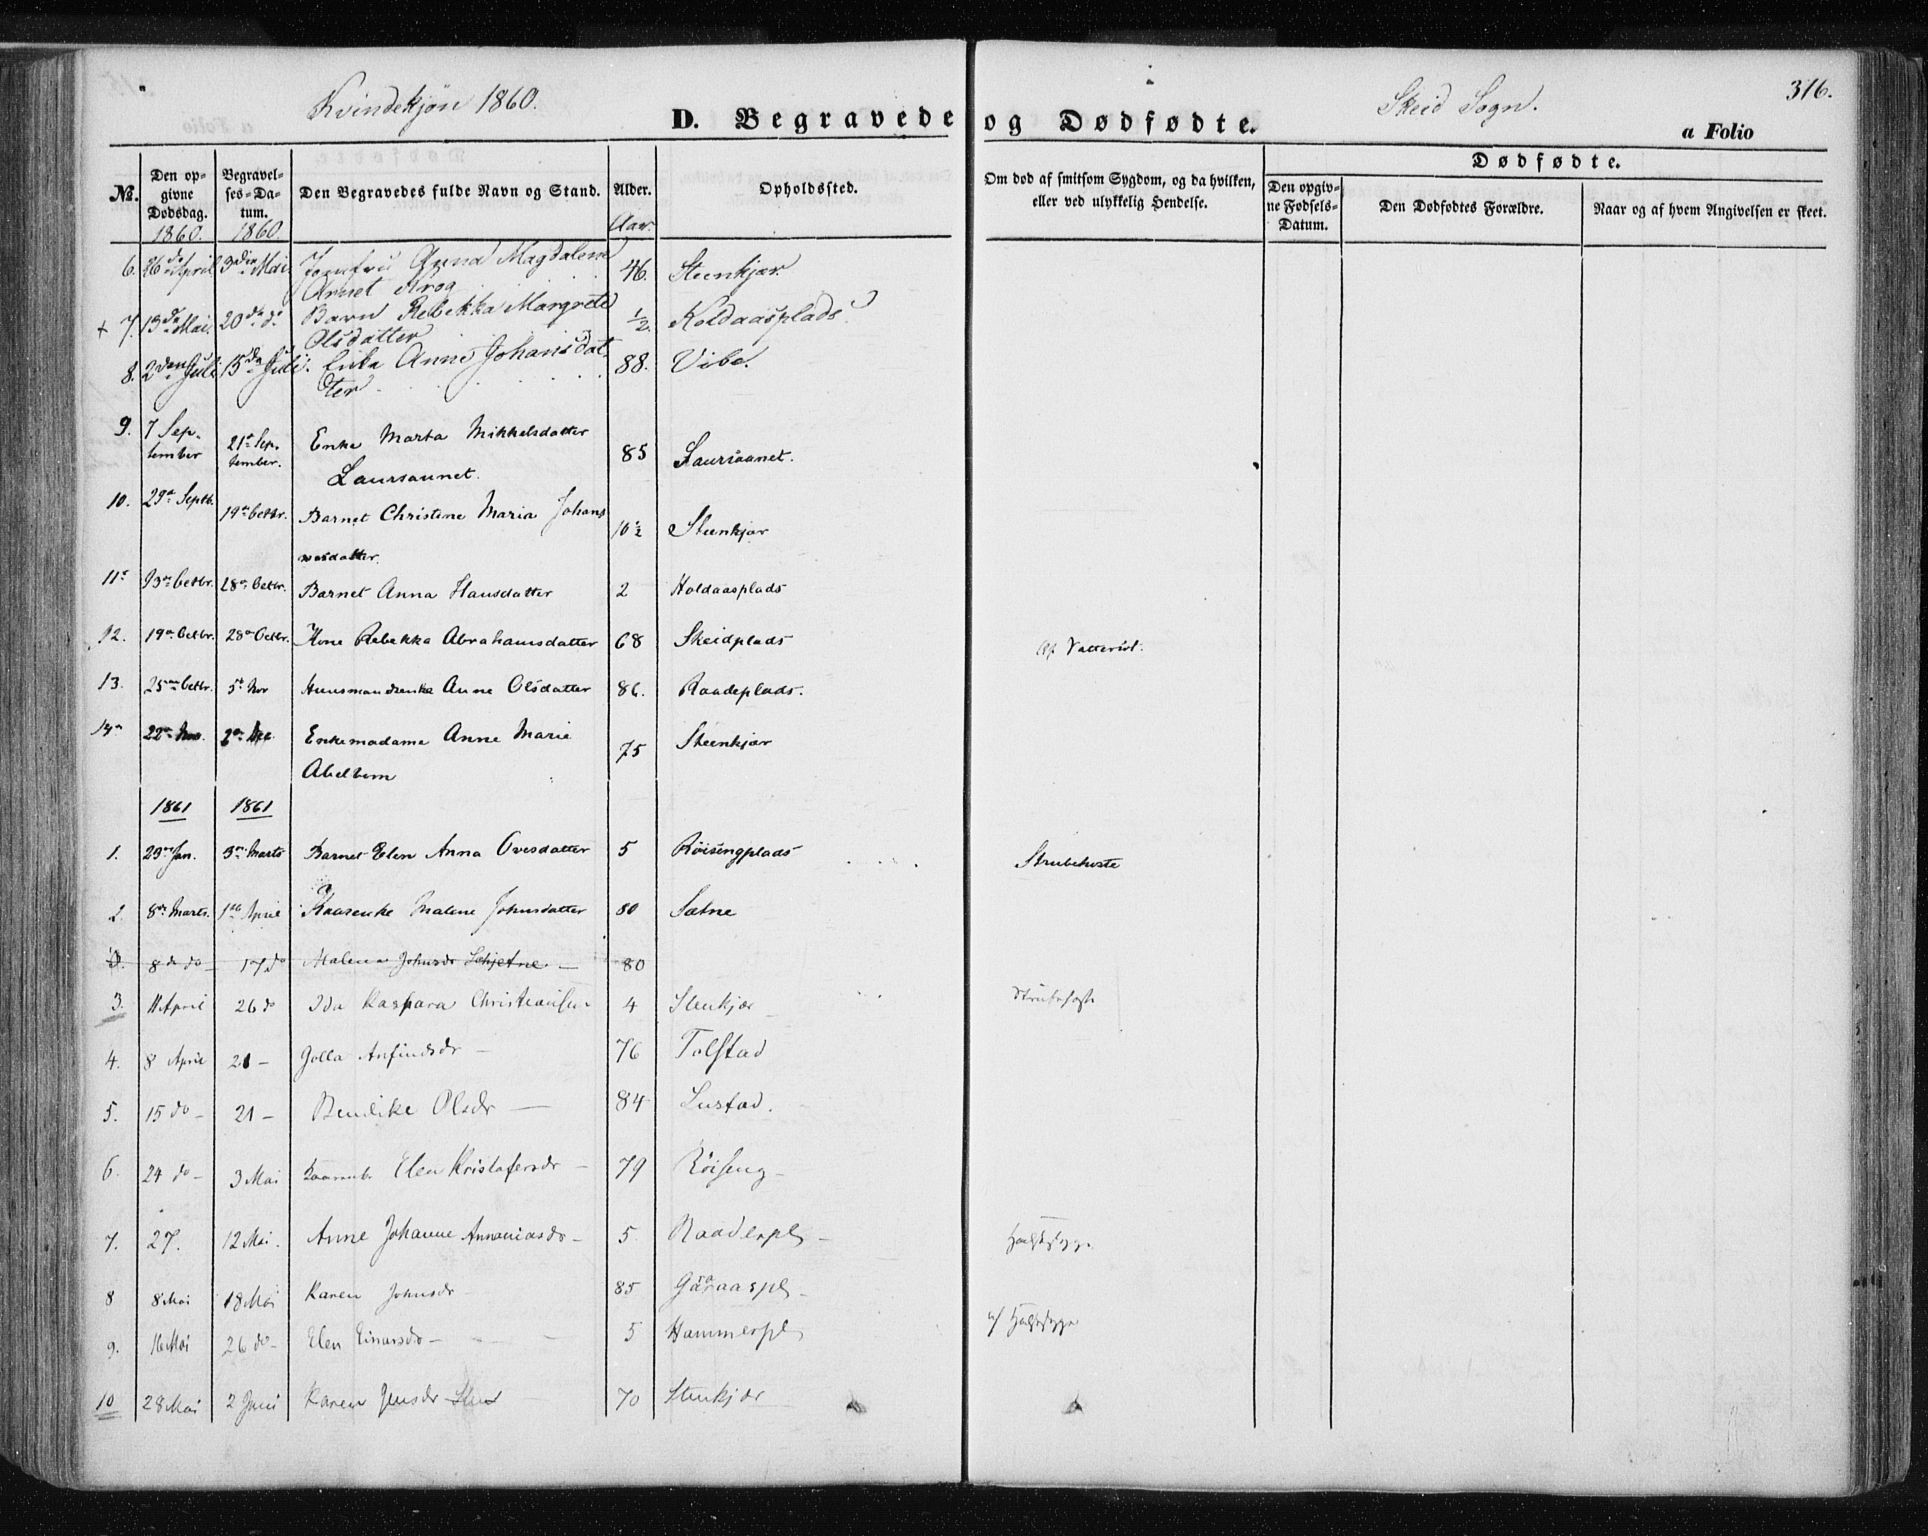 Kvindekjøn 1860.
Skeid Sogn.
316.
D. Begravede og Dødfødte.
a Folio
No. Den opgivne Dødsdag. Begravelses-Datum. Den Begravedes fulde Navn og Stand. Alder. Opholdssted. Om død af smitsom Sygdom, og da hvilken, eller ved ulykkelig Hendelse.
Dødfødte.
Den opgivne Fødsels-Datum. Den Dødfødtes Forældre. Naar og af hvem Angivelsen er skeet.
1860. 1860. Aar.
6. 26de April 3die Mai Jomfru Anna Magdalene 46. Steenkjær.
Arnet Krog
+ 7. 13de Mai. 20de do Barn Rebekka Margrete 1/2. Koldaasplads.
Olsdatter
8. 2den Juli 15de Juli. Enke Anne Johansdat 88. Vibe.
ter
9. 7 September 21de September. Enke Marta Mikkelsdatter 85 Laursaunet.
Laursaunet.
10. 29de Septb. 19de Octbr. Barnet Christine Maria Johan 10 1/2 Steenkjær
nesdatter.
11. 23de Octbr. 28de Octbr. Barnet Anna Hansdatter 2 Holdaasplads
12. 19de Octbr. 28de Octbr. Kone Rebekka Abrahamsdatter 68 Skeidplads Af Vattersot.
13. 25de Octbr. 5te Nov Huusmandsenke Anne Olsdatter 86. Raadeplads.
14. 22de Nov. 2den Dec. Enkemadame Anne Marie 75 Steenkjær
1861 1861
1. 23de Jan. 3die Marts Barnet Elen Anna Ovesdatter 5 Røisengplads Strubehoste
2. 8de Marts. 1ste April Kaarenke Malene Johnsdatter 80 Sætne
3. 8de do 17 do Malena Johnsdr Schjetne 80
3. 11 April 26 do Ida Kaspara Christiansen 4 Stenkjær
4. 8 April 21 Golla Anfindsdr 76 Tolstad
5. 15 do 21 Bendike Olsdr 84 Lustad.
6. 24 do 3 Mai Elen Kristofersdr 79 Røiseng
7. 27. 12 Mai. Anne Johanne Annaniasdr 5. Raaderpl Halssyge
8 8 Mai 18 Mai Karen Johnsdr 85
9. 16 Mai 26 do Elen Einarsdr 5 Hammerpl af Halssyge
10 28 Mai 2 Juni Karen Jensdr 70 Stenkjær